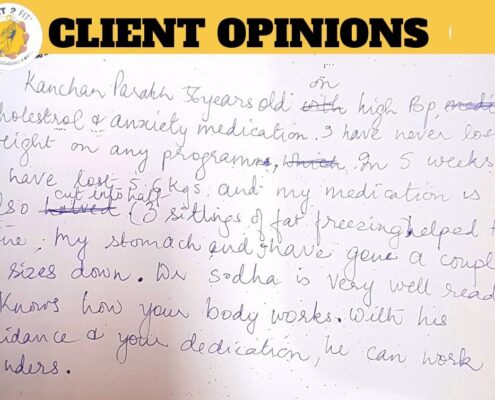 CLIENT OPINIONS
on
Kanchan Parakh 56 years old with high Bp, medi
holestrol & anxiety medication. I have never los
eight on any programm, which, In 5 weeks
have lost 5.6 Kgs. and my medication is
cut into half
lso halved (3 sittings of fat freezing helped t
ne. My stomach and I have gone a coupl
sizes down. Dr Sodha is very well read
Knows how your body works. With his
idance & your dedication, he can work
nders.